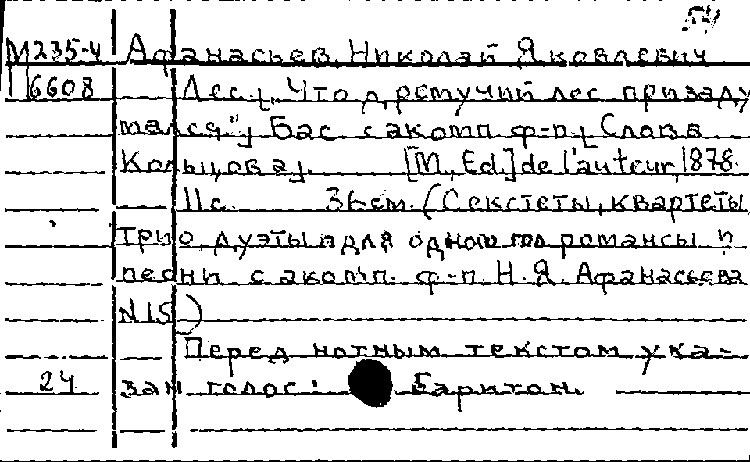 М235-4 Афанасьев, Николай Яковлевич
6608 Лес. [„Что дремучий лес призаду
мался"] Бас с акомп. ф-п. [Слова
Кольцова].  [М., Ed.] de l'auteur, 1878.
11 с.  36 см. (Секстеты, квартеты
трио, дуэты и для одного гол. романсы и
песни с акомп. ф-п. Н. Я. Афанасьева
N 15)
Перед нотным текстом ука-
24 зан голос: Баритон.